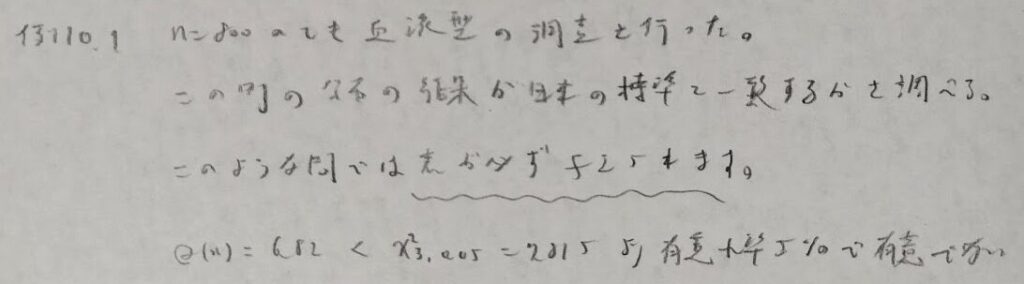 例10.1 n=800 のとき 血液型の調査を行った。
この町の分布の結果が日本の標準と一致するかを調べる。
このような問では表が必ず与えられます。
Q(x) = 6.82 < χ²3,0.05 = 7.815 より 有意水準5%で有意でない